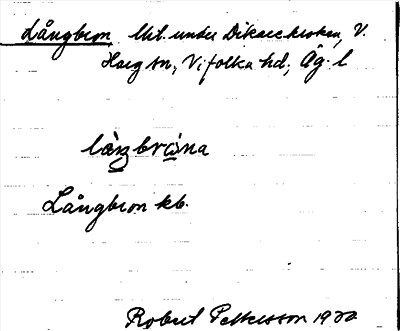 Långbron Ut. under Dikareckroken, V.
Harg sn, Vifolka hd; Ög. l
làŋbrωna
Långbron kb.
Robert Petersson 1922